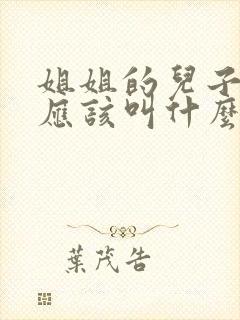 姐姐的兒子
應該叫什麼
葉茂告